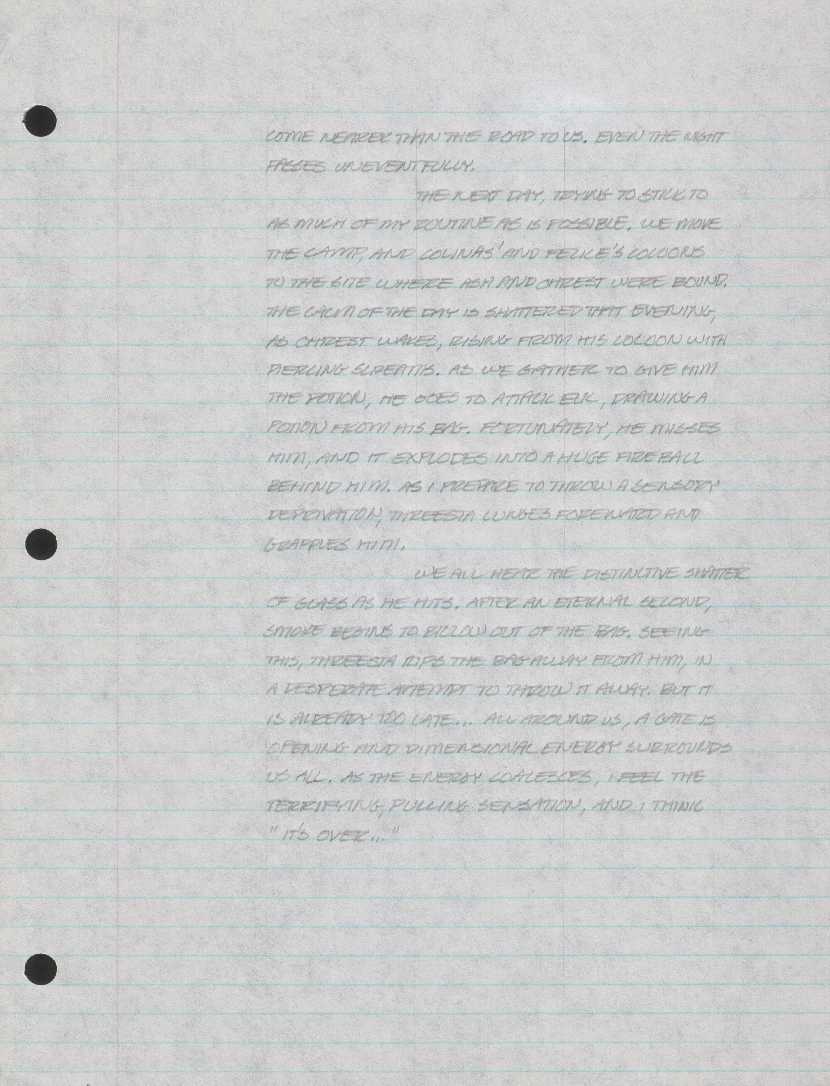 COME NEARER THAN THE ROAD TO US. EVEN THE NIGHT
PASSES UNEVENTFULLY.
THE NEXT DAY, TRYING TO STICK TO
AS MUCH OF MY ROUTINE AS IS POSSIBLE. WE MOVE
THE CAMP, AND COLINAS' AND FELICE'S COCOONS
TO THE SITE WHERE ASH AND CHREST WERE BOUND.
THE CALM OF THE DAY IS SHATTERED THAT EVENING,
AS CHREST WAKES, RISING FROM HIS COCOON WITH
PIERCING SCREAMS. AS WE GATHER TO GIVE HIM
THE POTION, HE GOES TO ATTACK ELK, DRAWING A
POTION FROM HIS BAG. FORTUNATELY, HE MISSES
HIM, AND IT EXPLODES INTO A HUGE FIREBALL
BEHIND HIM. AS I PREPARE TO THROW A SENSORY
DEPRIVATION, THREESTA LUNGES FOREWARD AND
GRAPPLES HIM.
WE ALL HEAR THE DISTINCTIVE SHATTER
OF GLASS AS HE HITS. AFTER AN ETERNAL SECOND,
SMOKE BEGINS TO BILLOW OUT OF THE BAG. SEEING
THIS, THREESTA RIPS THE BAG AWAY FROM HIM, IN
A DESPERATE ATTEMPT TO THROW IT AWAY. BUT IT
IS ALREADY TOO LATE... ALL AROUND US, A GATE IS
OPENING AND DIMENSIONAL ENERGY SURROUNDS
US ALL. AS THE ENERGY COALESCES, I FEEL THE
TERRIFYING, PULLING SENSATION, AND I THINK
"IT'S OVER..."